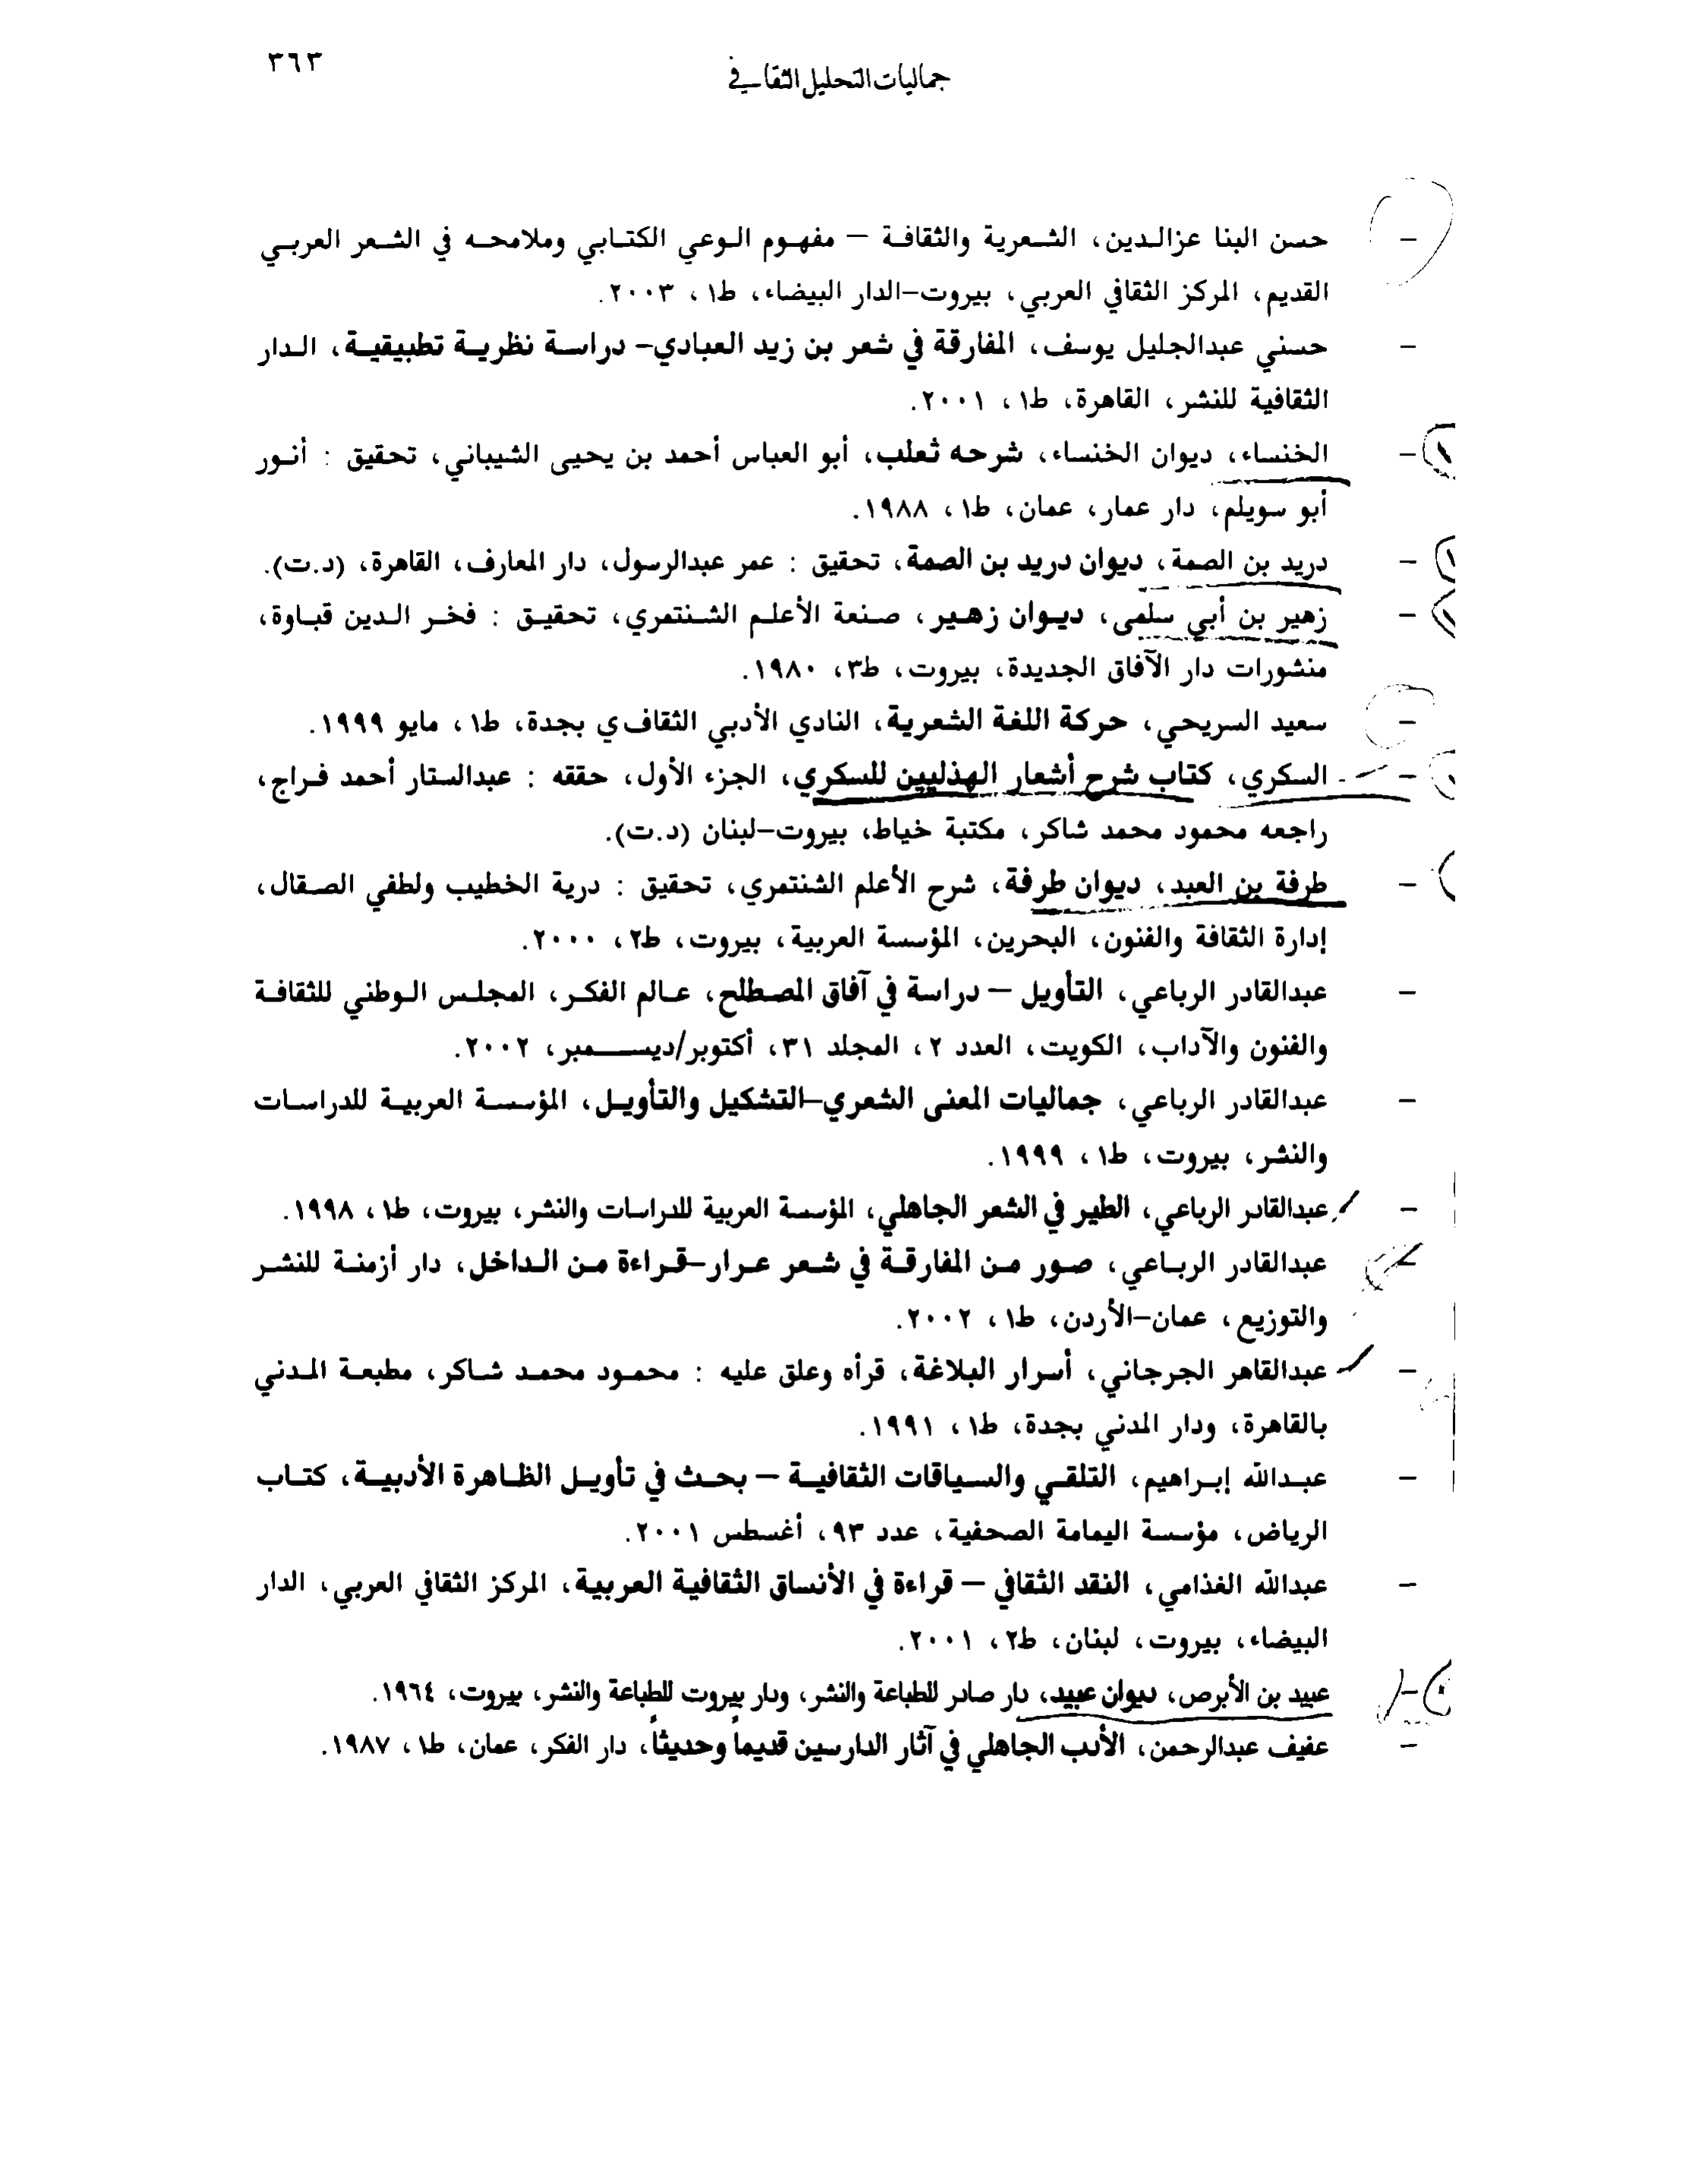 ٣٦٣
جماليات التحليل الثقافي
- حسن البنا عزالدين، الشعرية والثقافة – مفهوم الوعي الكتابي وملامحه في الشعر العربي
القديم، المركز الثقافي العربي، بيروت-الدار البيضاء، ط١، ٢٠٠٣.
- حسني عبدالجليل يوسف، المفارقة في شعر بن زيد العبادي- دراسة نظرية تطبيقية، الدار
الثقافية للنشر، القاهرة، ط١، ٢٠٠١.
- الخنساء، ديوان الخنساء، شرحه ثعلب، أبو العباس أحمد بن يحيى الشيباني، تحقيق : أنور
أبو سويلم، دار عمار، عمان، ط١، ١٩٨٨.
- دريد بن الصمة، ديوان دريد بن الصمة، تحقيق : عمر عبدالرسول، دار المعارف، القاهرة، (د.ت).
- زهير بن أبي سلمى، ديوان زهير، صنعة الأعلم الشنتمري، تحقيق : فخر الدين قباوة،
منشورات دار الآفاق الجديدة، بيروت، ط٣، ١٩٨٠.
- سعيد السريحي، حركة اللغة الشعرية، النادي الأدبي الثقافي بجدة، ط١، مايو ١٩٩٩.
- السكري، كتاب شرح أشعار الهذليين للسكري، الجزء الأول، حققه : عبدالستار أحمد فراج،
راجعه محمود محمد شاكر، مكتبة خياط، بيروت-لبنان (د.ت).
- طرفة بن العبد، ديوان طرفة، شرح الأعلم الشنتمري، تحقيق : درية الخطيب ولطفي الصقال،
إدارة الثقافة والفنون، البحرين، المؤسسة العربية، بيروت، ط٢، ٢٠٠٠.
- عبدالقادر الرباعي، التأويل – دراسة في آفاق المصطلح، عالم الفكر، المجلس الوطني للثقافة
والفنون والآداب، الكويت، العدد ٢، المجلد ٣١، أكتوبر/ديسمبر، ٢٠٠٢.
- عبدالقادر الرباعي، جماليات المعنى الشعري-التشكيل والتأويل، المؤسسة العربية للدراسات
والنشر، بيروت، ط١، ١٩٩٩.
- عبدالقادر الرباعي، الطير في الشعر الجاهلي، المؤسسة العربية للدراسات والنشر، بيروت، ط١، ١٩٩٨.
- عبدالقادر الرباعي، صور من المفارقة في شعر عرار-قراءة من الداخل، دار أزمنة للنشر
والتوزيع، عمان-الأردن، ط١، ٢٠٠٢.
- عبدالقاهر الجرجاني، أسرار البلاغة، قرأه وعلق عليه : محمود محمد شاكر، مطبعة المدني
بالقاهرة، ودار المدني بجدة، ط١، ١٩٩١.
- عبدالله إبراهيم، التلقي والسياقات الثقافية – بحث في تأويل الظاهرة الأدبية، كتاب
الرياض، مؤسسة اليمامة الصحفية، عدد ٩٣، أغسطس ٢٠٠١.
- عبدالله الغذامي، النقد الثقافي – قراءة في الأنساق الثقافية العربية، المركز الثقافي العربي، الدار
البيضاء، بيروت، لبنان، ط٢، ٢٠٠١.
- عبيد بن الأبرص، ديوان عبيد، دار صادر للطباعة والنشر، ودار بيروت للطباعة والنشر، بيروت، ١٩٦٤.
- عفيف عبدالرحمن، الأدب الجاهلي في آثار الدارسين قديماً وحديثاً، دار الفكر، عمان، ط١، ١٩٨٧.